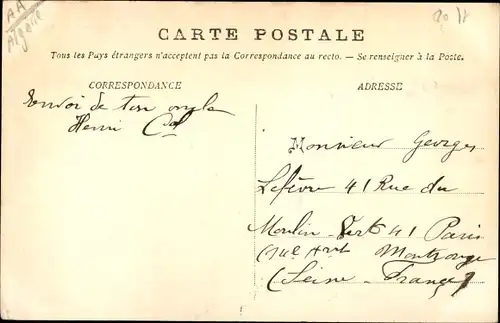 AA
Algérie
CARTE POSTALE
Tous les Pays étrangers n'acceptent pas la Correspondance au recto. — Se renseigner à la Poste.
CORRESPONDANCE
ADRESSE
Envoi de ton oncle
Henri
Monsieur Georges
Lefèvre 41 Rue du
Moulin Vert 41 Paris
Montrouge
(Seine - France)